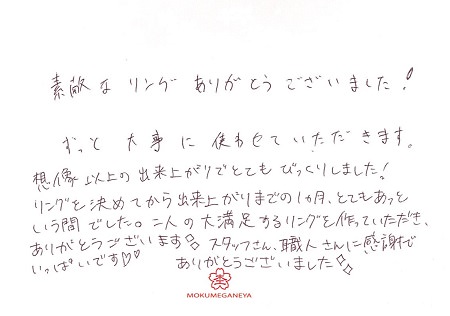 素敵な リング ありがとう ございました!
ずっと 大事 に 使わせて いただ きます。
想像 以上の 出来上がりで とても びっくりしました!
リングを 決めてから 出来上がりまでの 1ヵ月、とてもあっと
いう間 でした。二人の 大満足 するリングを 作っていただき、
ありがとうございます スタッフさん、職人さんに 感謝で
いっぱいです♡♡ ありがとうございました
MOKUMEGANEYA